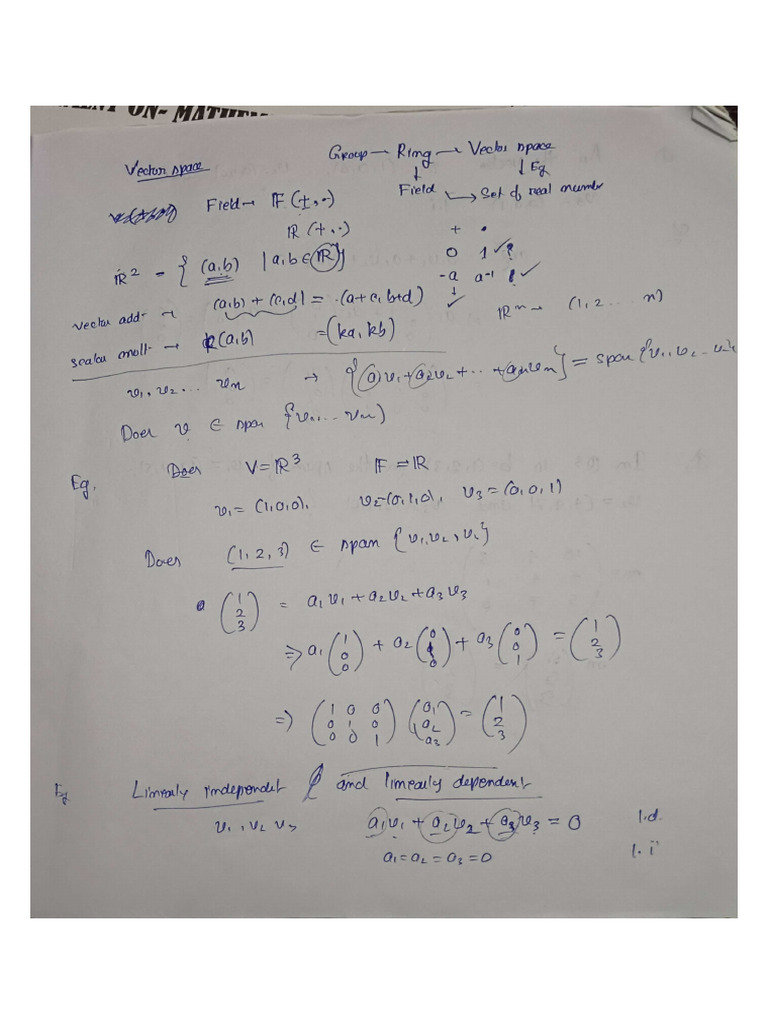 ON- MATHE
Vector space
Group → Ring → Vector space
↓ ↓ Eg
Field → Set of real numbr
Field → 𝔽 (+, ·)
ℝ (+, ·)
+ ·
0 1 ✓
-a a⁻¹ ✓
ℝ² = { (a,b) | a,b ∈ ℝ }
vector add → (a,b) + (c,d) = (a+c, b+d) ✓
ℝⁿ → (1, 2 ... n)
scalar mult → k(a,b) = (ka, kb)
v₁, v₂ ... vₙ → {a₁v₁ + a₂v₂ + ... + aₙvₙ} = span {v₁, v₂ ... vₙ}
Does v ∈ span {v₁, ... vₙ)
Eg. Does V = ℝ³ 𝔽 = ℝ
v₁ = (1,0,0), v₂ = (0,1,0), v₃ = (0,0,1)
Does (1,2,3) ∈ span {v₁, v₂, v₃}
(1 2 3) = a₁v₁ + a₂v₂ + a₃v₃
⇒ a₁ (1 0 0) + a₂ (0 1 0) + a₃ (0 0 1) = (1 2 3)
⇒ (1 0 0
0 1 0
0 0 1) (a₁ a₂ a₃) = (1 2 3)
Eg Linearly independet and linearly dependent
v₁, v₂ v₃ a₁v₁ + a₂v₂ + a₃v₃ = 0 l.d.
a₁ = a₂ = a₃ = 0 l.i